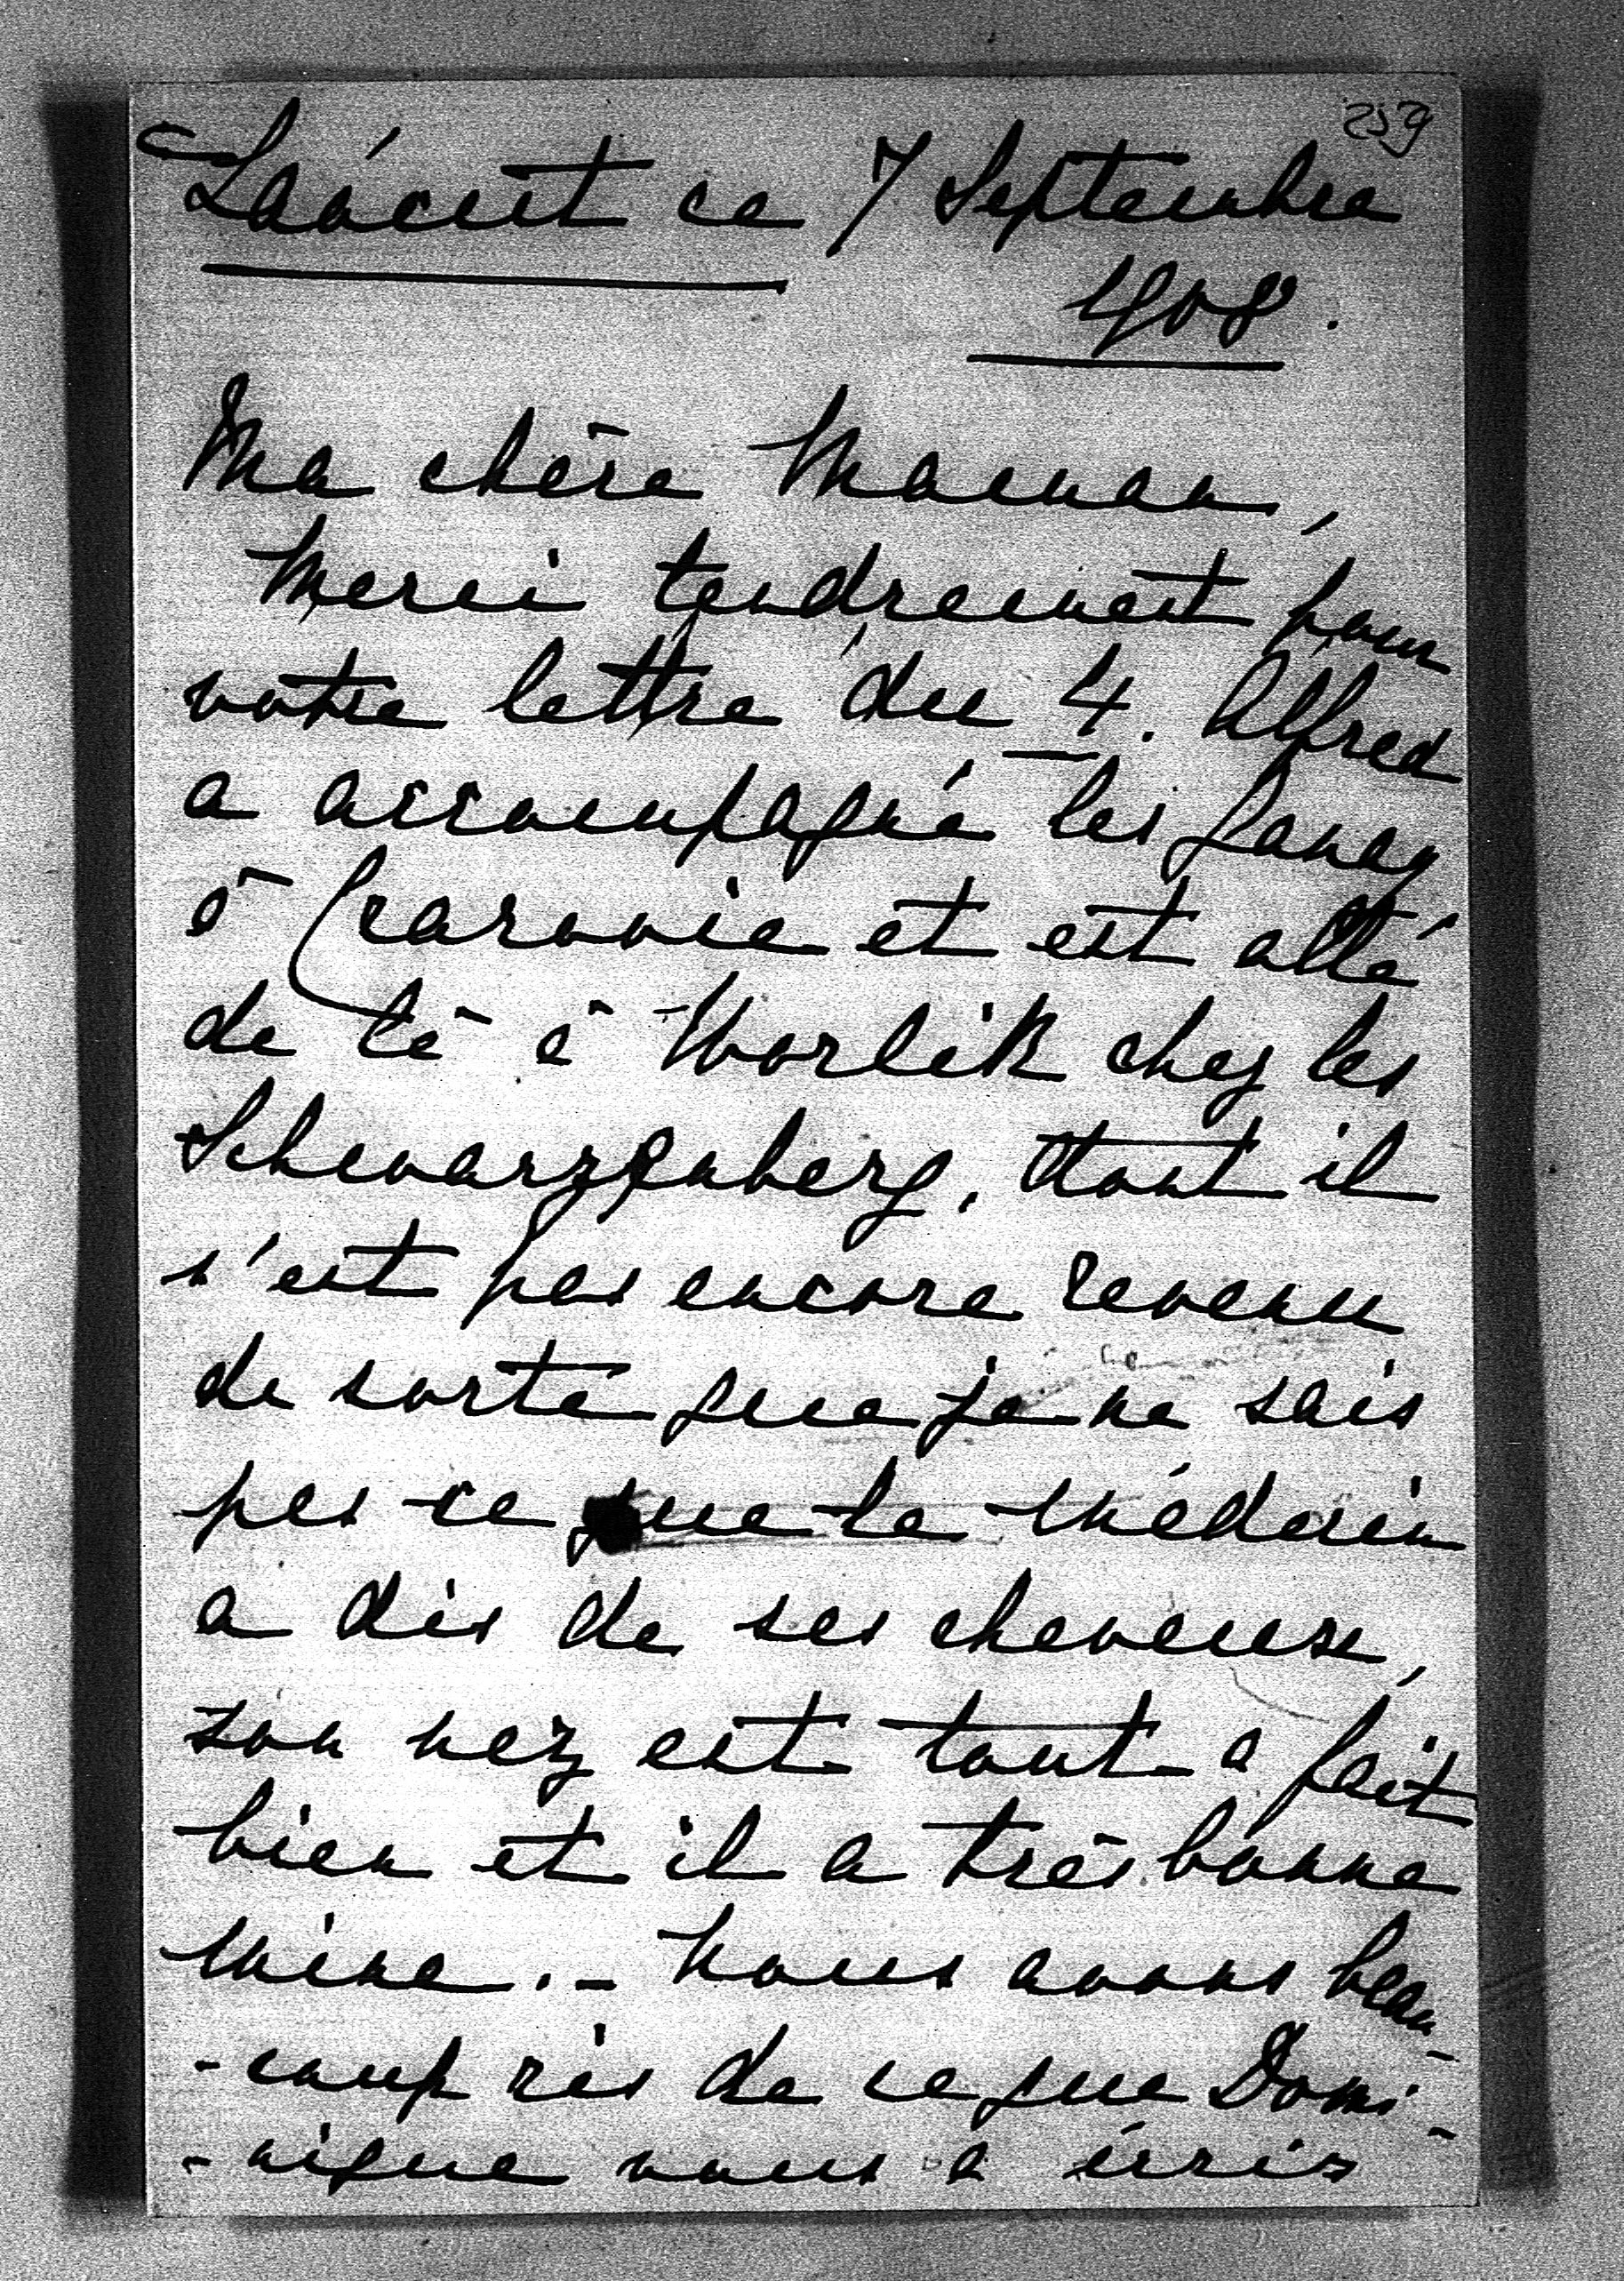 259
Łańcut ce 7 Septembre
1908.
Ma chère Maman,
Merci tendrement pour
votre lettre du 4. Alfred
a accompagné les
à Cracovie et est allé
de là à Worlik chez les
Schwarzenberg, dont il
n'est pas encore revenu
de sorte que je ne sais
pas ce que le médecin
a dis de ses cheveux,
son nez est tout a fait
bien et il a très bonne
mine. - Nous avons beau-
-coup ris de ce que Domi-
-nique vous a écris